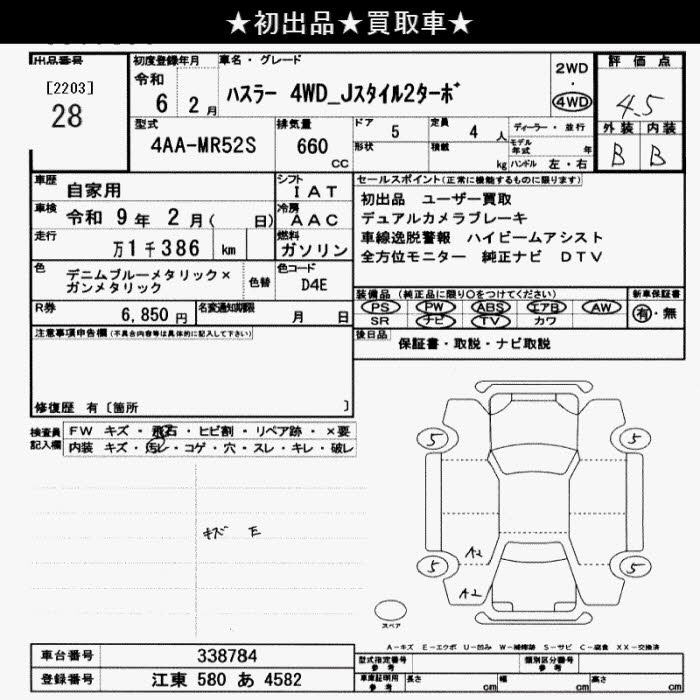 ★初出品★買取車★
出品番号
[2203]
28
初度登録年月
令和
6 2 月
車名・グレード
ハスラー 4WD_Jスタイル2ターボ
2WD
4WD
評価点
4.5
外装 内装
B B
型式
4AA-MR52S
排気量
660
CC
ドア
5
定員
4 人
ディーラー・並行
形状
積載
kg
モデル年式
年
ハンドル 左・右
車歴
自家用
シフト
IAT
車検
令和 9年 2月( 日)
冷房
AAC
走行
万1千386 km
燃料
ガソリン
色
デニムブルーメタリック×
ガンメタリック
色替
色コード
D4E
R券
6,850 円
名変通知期限
月 日
セールスポイント(正常に機能するものに限ります)
初出品 ユーザー買取
デュアルカメラブレーキ
車線逸脱警報 ハイビームアシスト
全方位モニター 純正ナビ DTV
装備品(純正品に限り○をつけてください)
PS PW ABS エアB AW
SR ナビ TV カワ
新車保証書
有・無
後日品
保証書・取説・ナビ取説
注意事項申告欄(不具合内容等は具体的に記入して下さい)
修復歴 有〔箇所 〕
検査員
記入欄
FW キズ・飛石・ヒビ割・リペア跡・×要
内装 キズ・汚レ・コゲ・穴・スレ・キレ・破レ
キズ E
5 5
A2
5 5
A2
スペア
A-キズ E-エクボ U-凹み W-補修跡 S-サビ C-腐食 XX-交換済
車台番号
338784
登録番号
江東 580 あ 4582
型式指定番号
参考
類別区分番号
参考
車庫証明用
参考
長さ cm
幅 cm
高さ cm